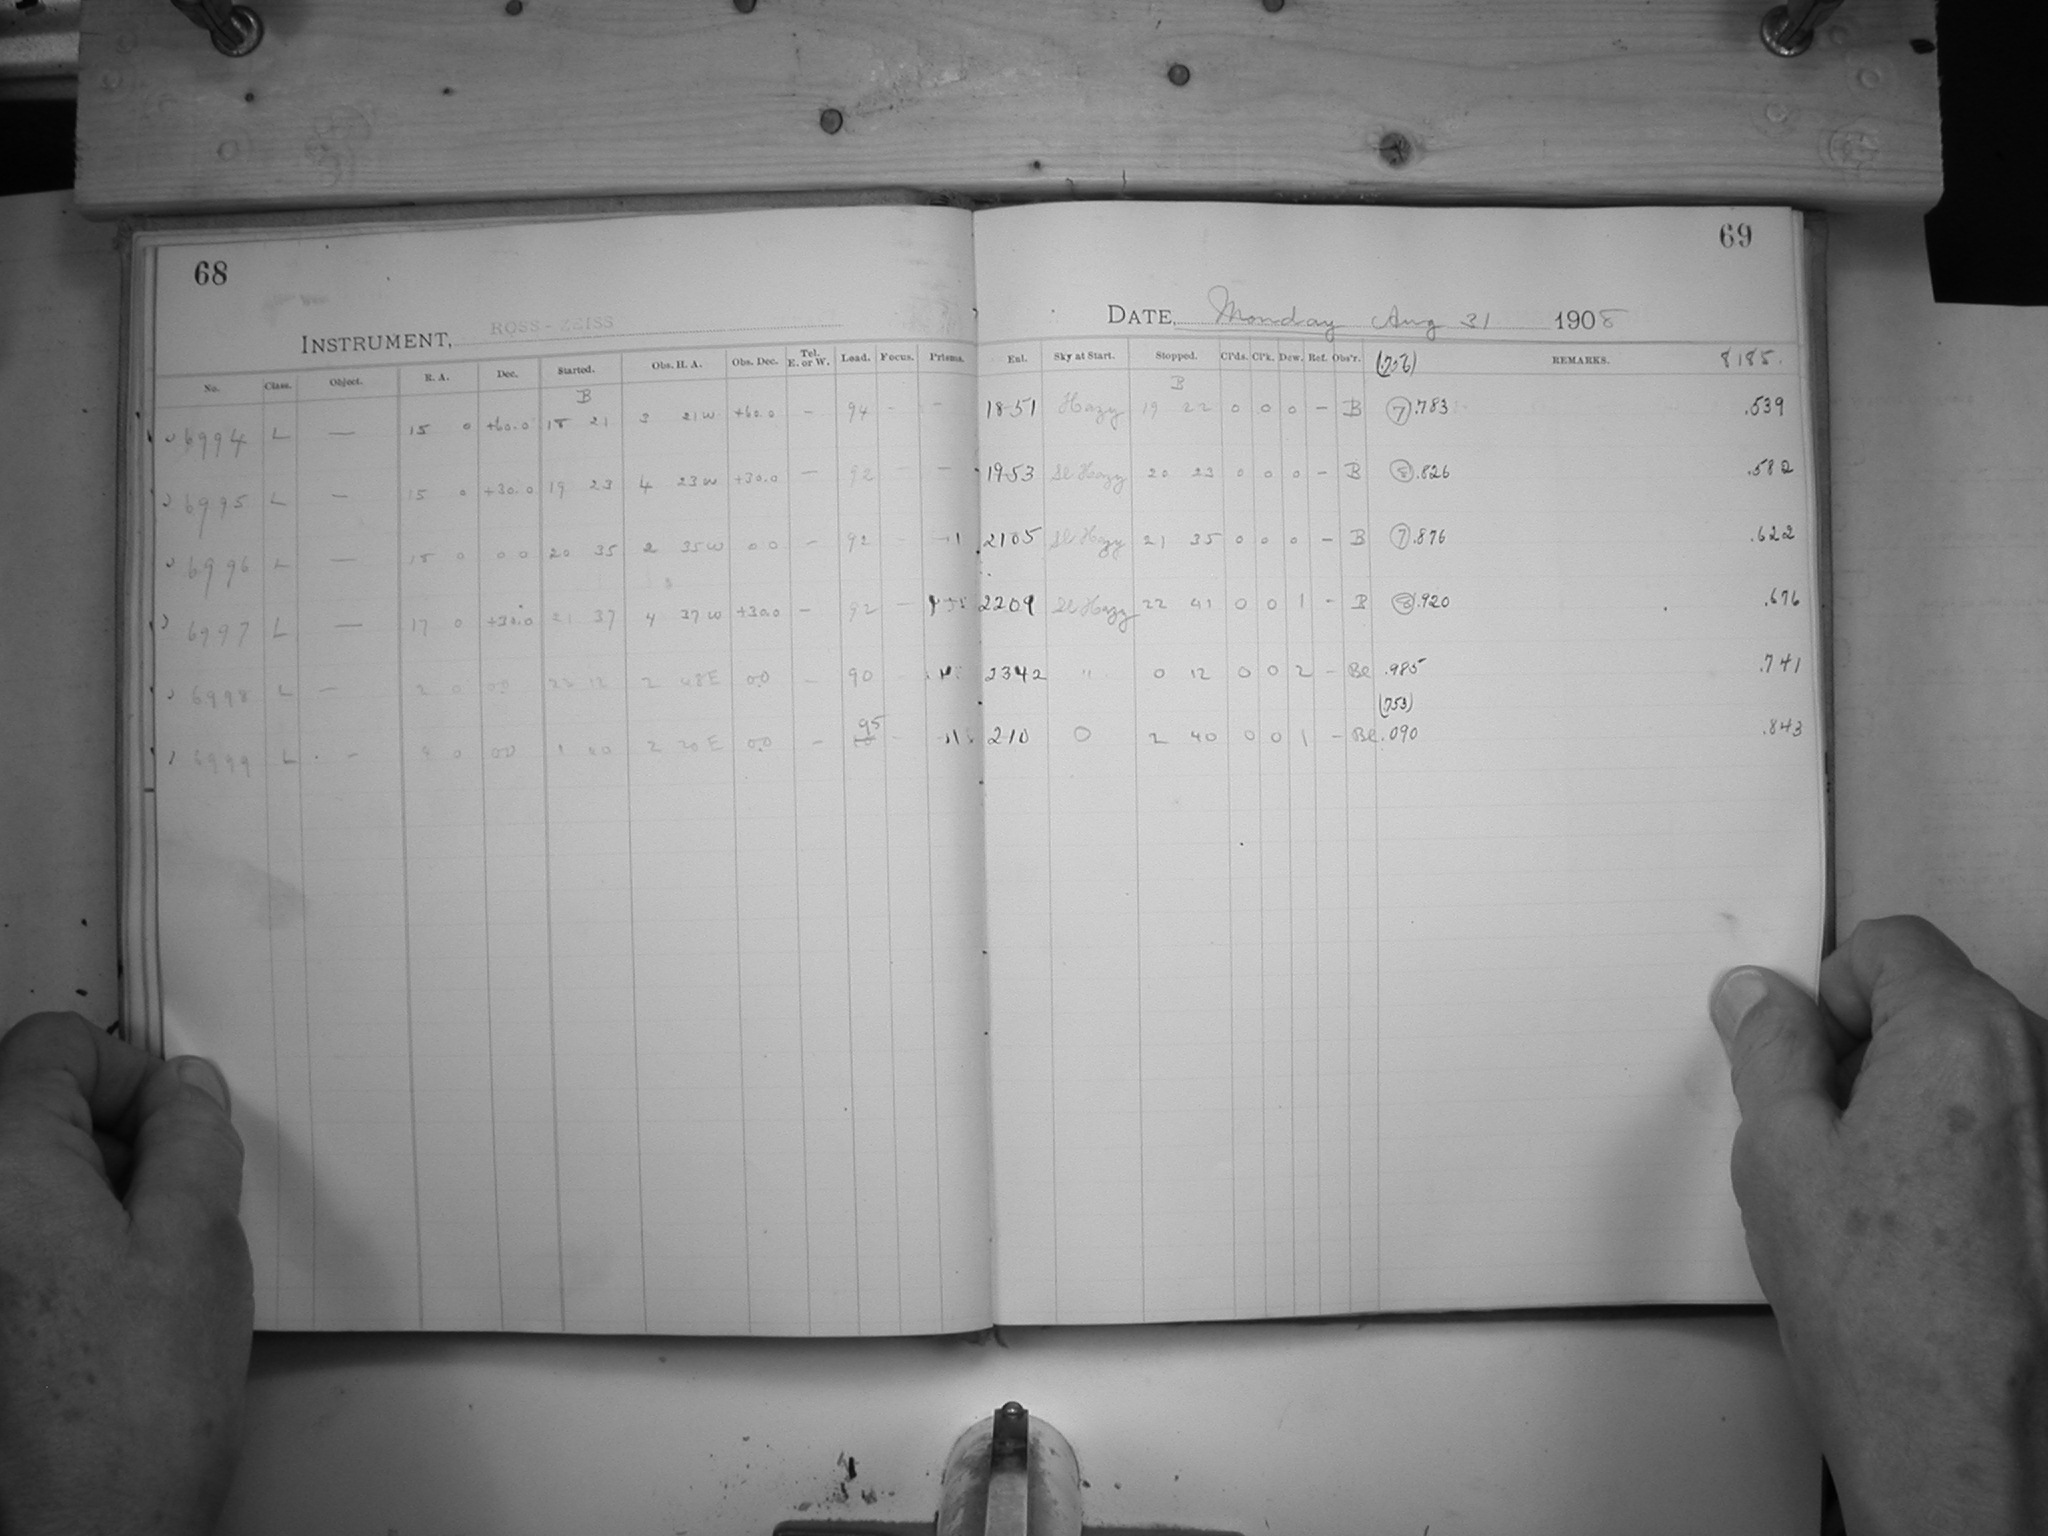 68
INSTRUMENT, ROSS-ZEISS
No. Class. Object. R. A. Dec. Started. Obs. H. A. Obs. Dec. Tel. E. or W. Load. Focus. Prisms.
B
6994 L — 15 0 +60.0 18 21 3 21W +60.0 — 94 - -
6995 L — 15 0 +30.0 19 23 4 23W +30.0 — 92 - -
6996 L — 18 0 0 0 20 35 2 35W 0 0 - 92 -
6997 L — 17 0 +30.0 21 37 4 37W +30.0 - 92 -
6998 L — 2 0 00 23 12 2 48E 00 - 90 -
95
6999 L - 4 0 00 1 40 2 20E 00 - -
69
DATE, Monday Aug 31 1908
Enl. Sky at Start. Stopped. Cl'ds. Cl'k. Dew. Ref. Obs'r. (.756) REMARKS. 8185.
B
1851 Hazy 19 22 0 0 0 - B (7) .783 .539
1953 Sl Hazy 20 23 0 0 0 - B (8) .826 .582
2105 Sl Hazy 21 35 0 0 0 - B (7) .876 .622
2209 Sl Hazy 22 41 0 0 1 - B (8) .920 .676
2342 " 0 12 0 0 2 - Be .985 .741
(753)
210 0 2 40 0 0 1 - Be .090 .843